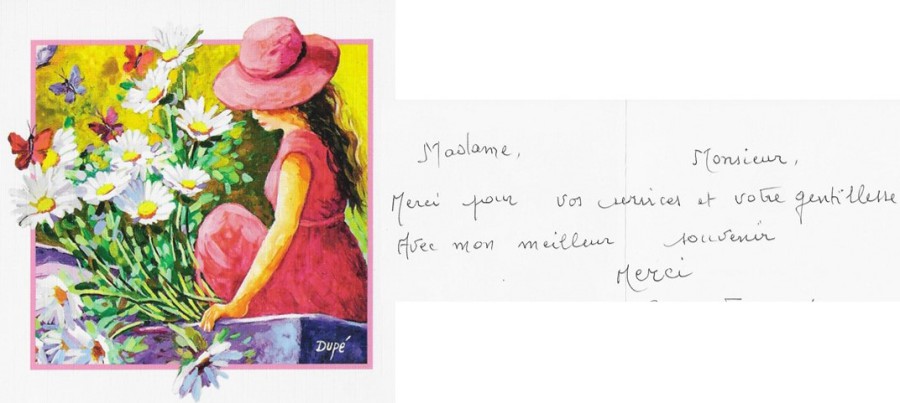 Dupé
Madame, Monsieur,
Merci pour vos services et votre gentillesse
Avec mon meilleur souvenir
Merci